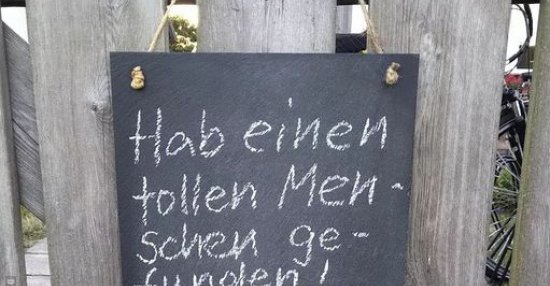 Hab einen
tollen Men-
schen ge-
funden!